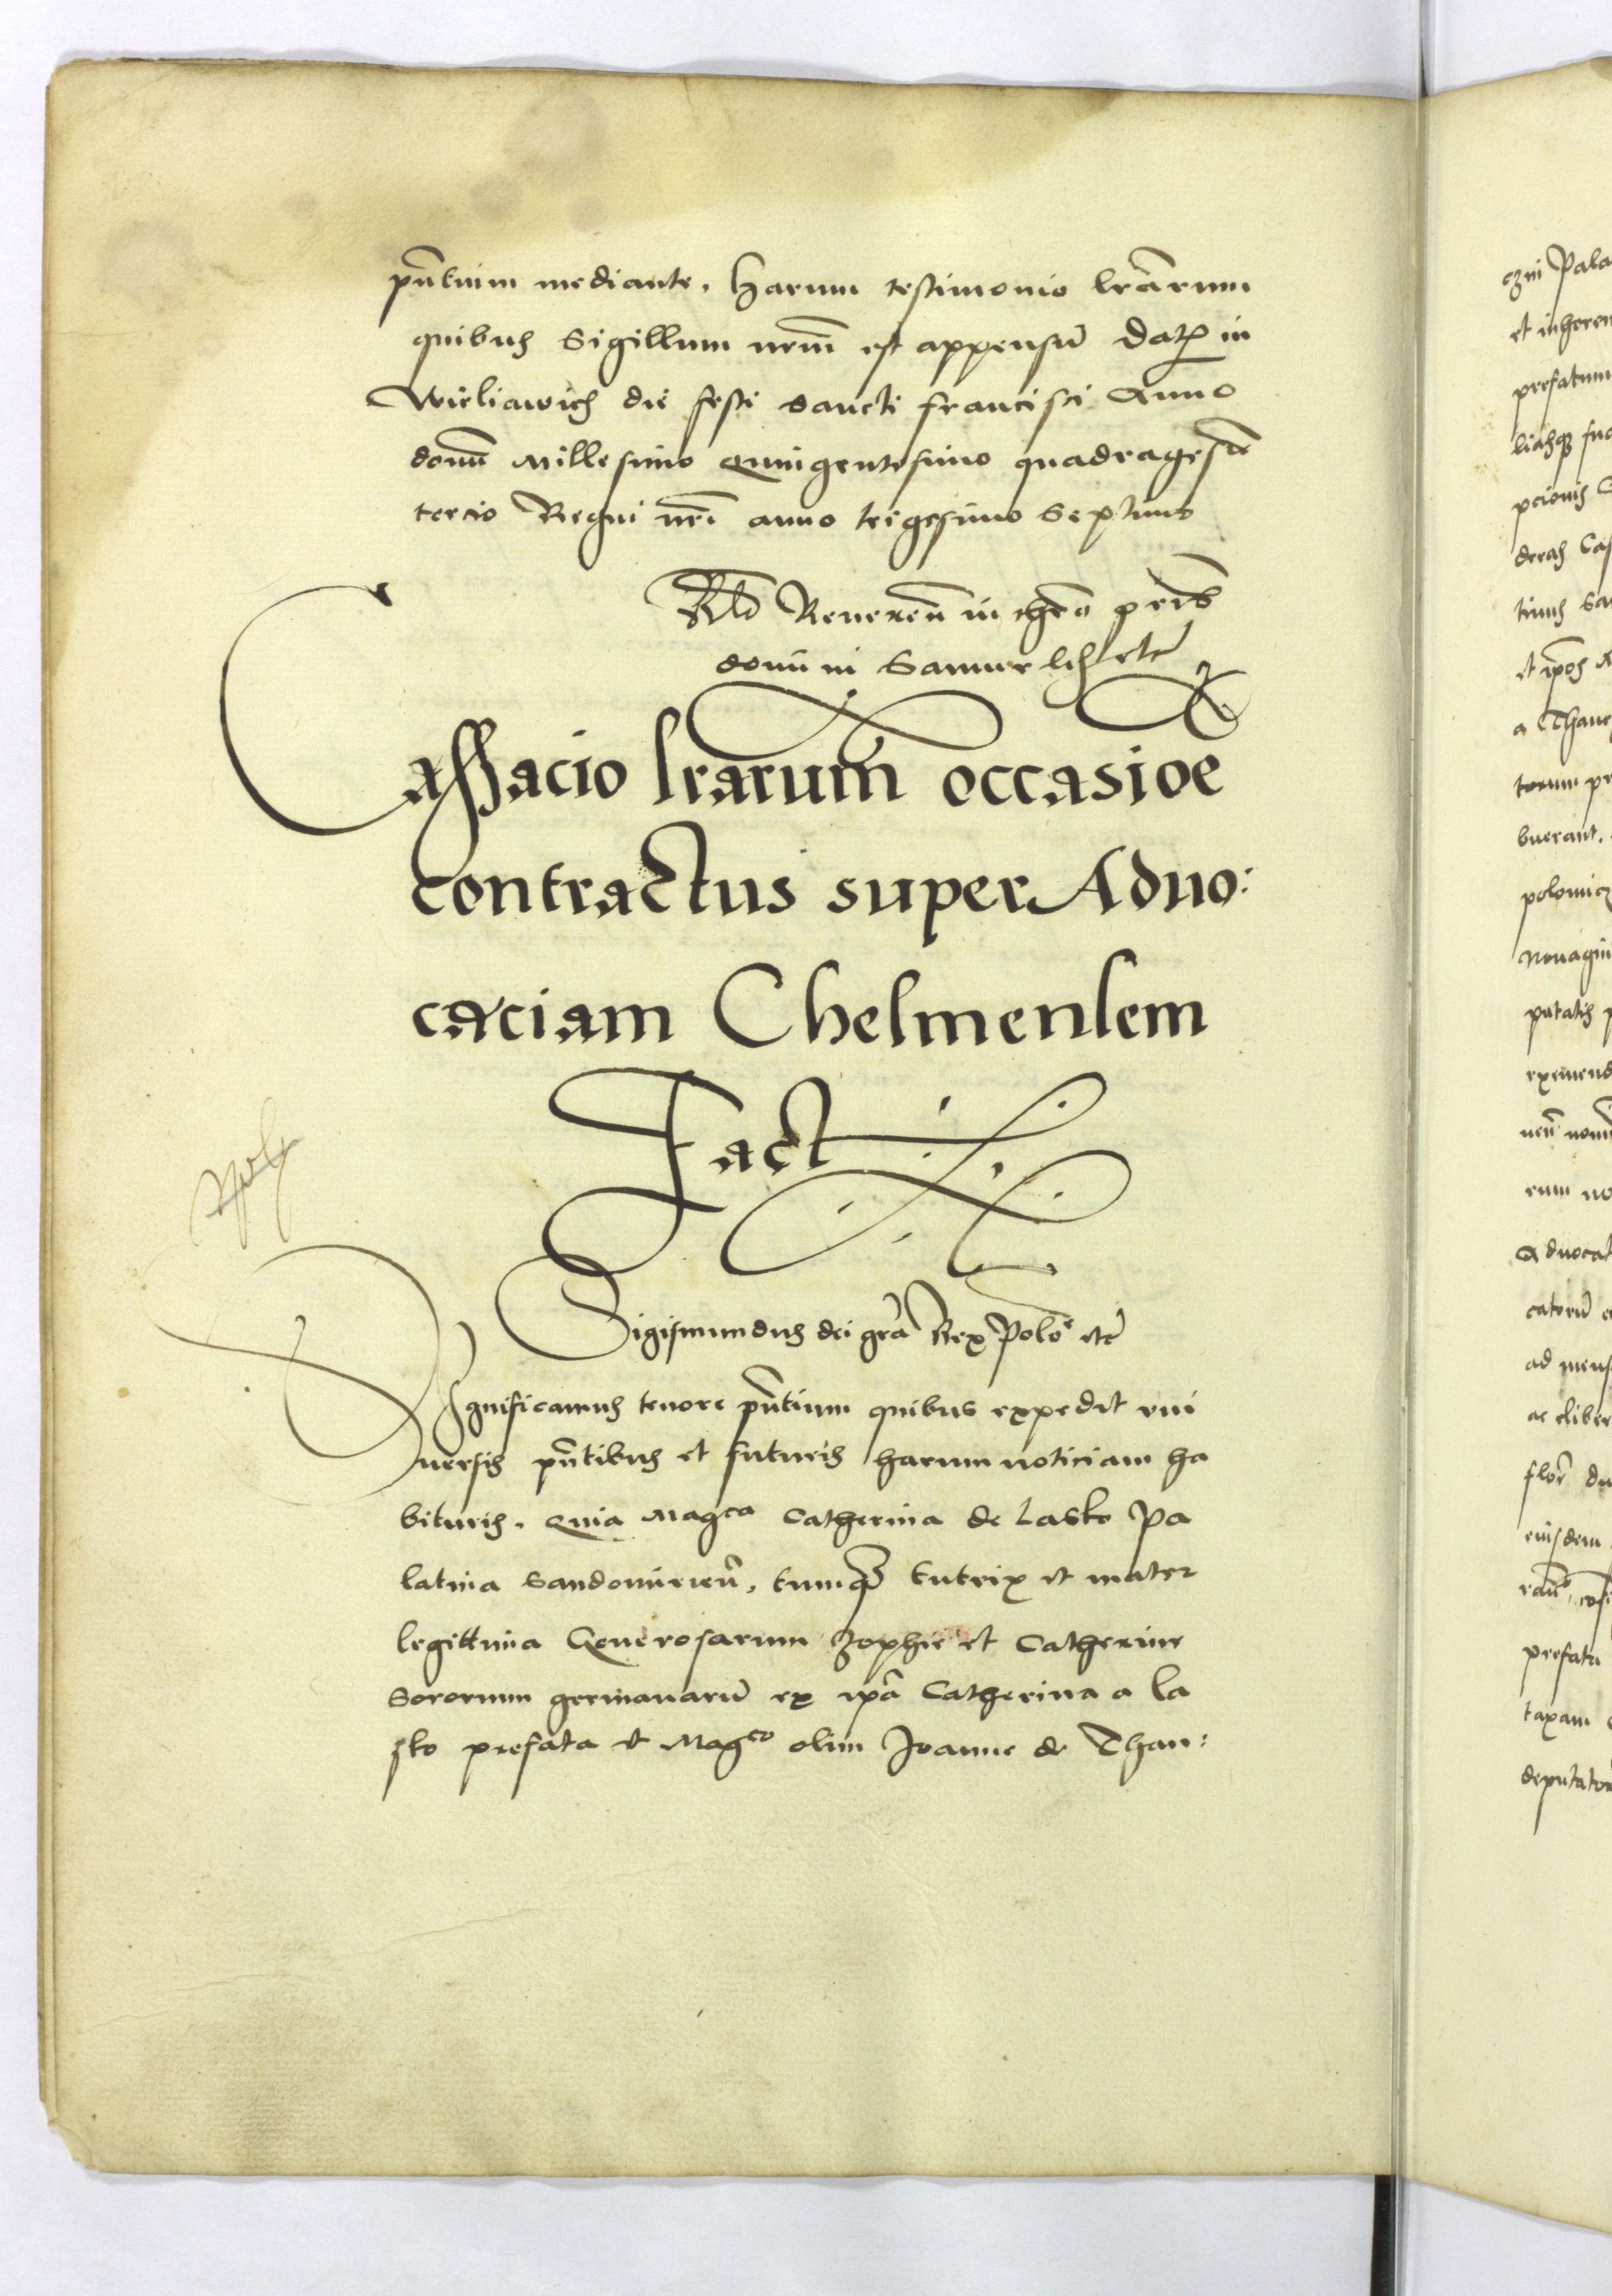 pn̄tium mediante. Harum testimonio lr̄arum
quibus Sigillum nrm̄ est appensu̅ Dat̅ in
Wieliawich die festi Sancti Francisci Anno
domi̅ Millesimo Quingentesimo quadragesi̅o
tercio Regni nr̄i anno trigesimo Septimo
Rlo̅ Reueren̄ in chr̄o pr̄is
domini Samuelis etc̄
Cassacio lr̄arum occasioē
contractus super Aduo:
caciam Chelmensem
Fact
Sigismundus dei gr̄a Rex Polo̅e etc̄
Significamus tenore pn̄tium quibus expedit vni
uersis pn̄tibus et futuris harum noticiam ha
bituris. Quia Mag^ca Catherina de Lasko Pa
latina Sandomirien̄, tumq̅ tutrix et mater
legittima Generosarum Zophie et Catherine
Sororum germanaru̅ ex ip̄a Catherina a La
sko prefata et Mag^co olim Joanne de Than:
czni Pala
et inheren
prefatum
liasq̅ suo
pcionis
deras Cas
timus Sa
et ip̄os
a Thanc
torum pr
buerant.
polomicz
Nonagin
putatis
eximend
nen̄ nomi
rum no
Aduocat
catoru̅
ad mens
ac liber
flor̄ du
eiusdem
prefata
taxam
deputator